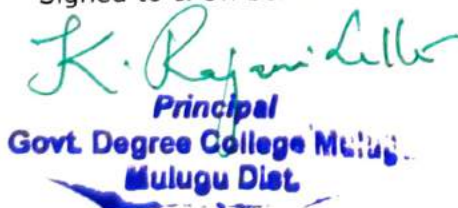 Signed to
K. Rajani Latha
Principal
Govt. Degree College Mulug
Mulugu Dist.